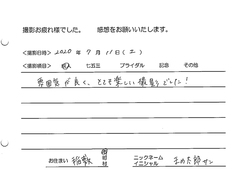 撮影お疲れ様でした。 感想をお願いいたします。
<撮影日時> 2020 年 7 月 11 日 (土)
<撮影項目> 成人 七五三 ブライダル 記念 その他
雰囲気が良く、とても楽しい撮影でした!
お住まい 稲敷 市 町 村 ニックネーム イニシャル まめ太郎サン